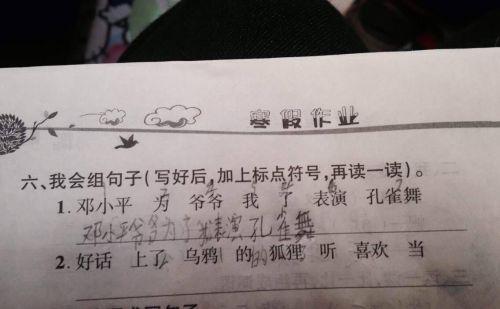 寒假作业
六、我会组句子(写好后,加上标点符号,再读一读)。
1. 邓小平 为 爷爷 我 了 表演 孔雀舞
邓小平爷爷为了我表演孔雀舞
2. 好话 上了 乌鸦 的 狐狸 听 喜欢 当